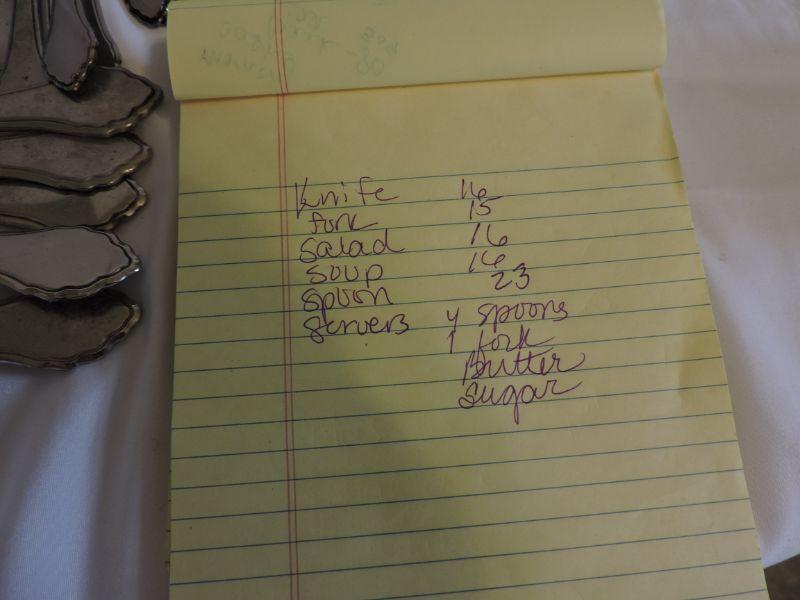 Knife 16
fork 15
salad 16
soup 16
spoon 23
servers 4 spoons
1 fork
Butter
Sugar